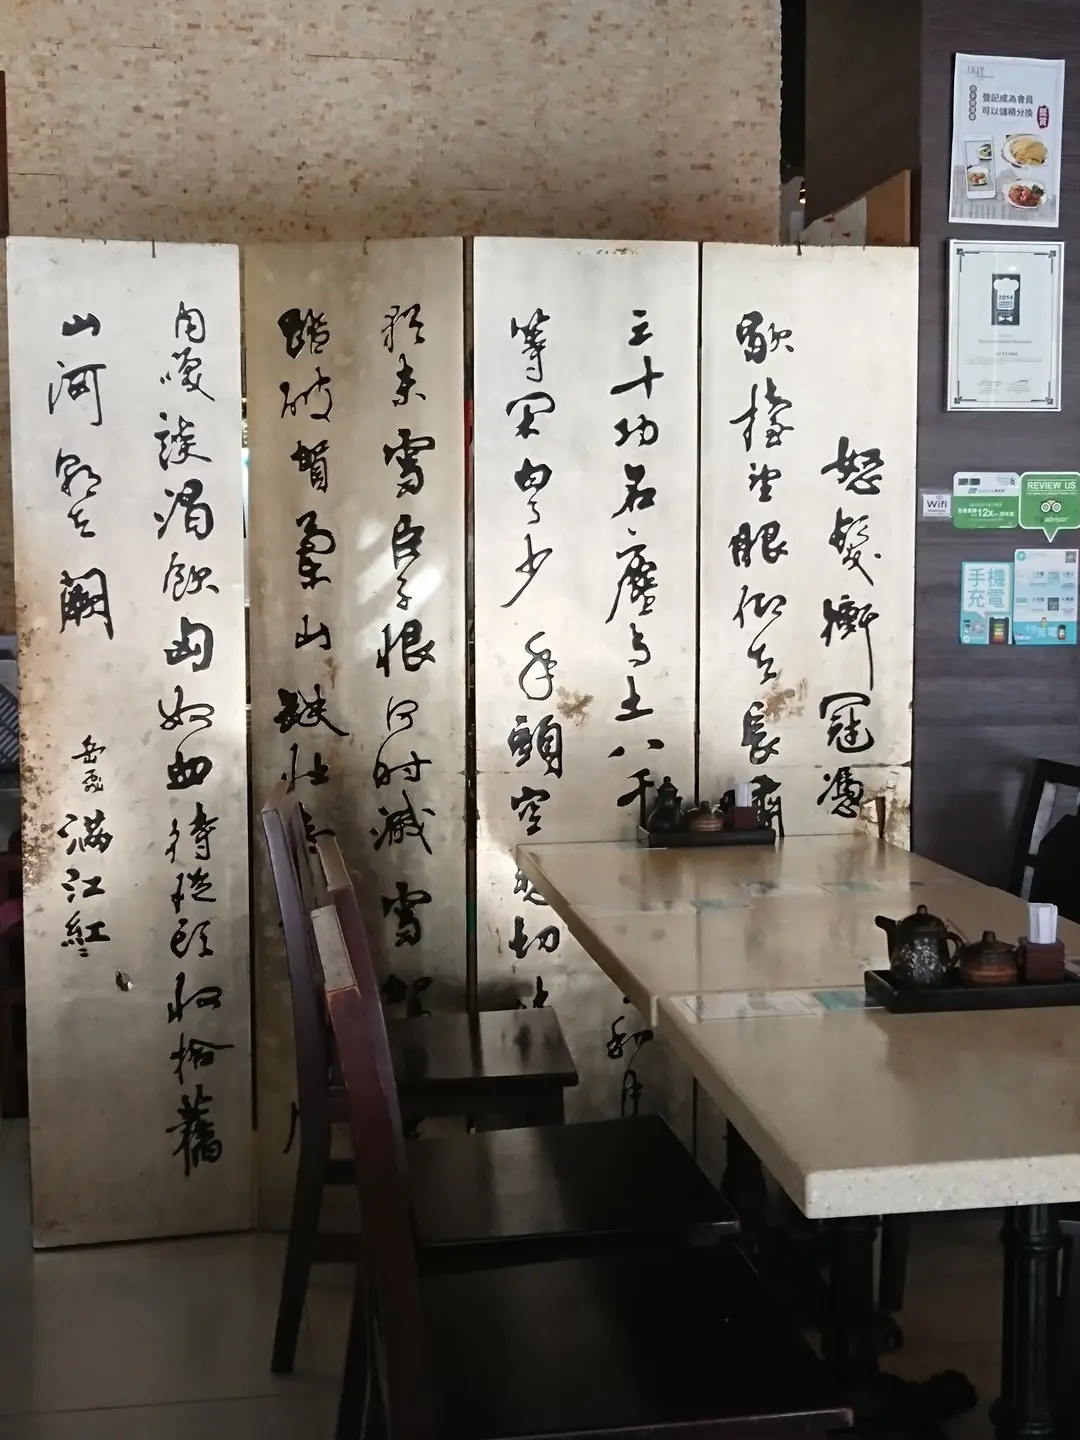 怒髮衝冠憑
歇擡望眼仰天長嘯
三十功名塵與土八千
和月
等閑白了少年頭空悲切
猶未雪臣子恨何时滅
駕
踏破賀蘭山缺壯志
肉咲談渴飲匈奴血待從頭收拾舊
山河朝天闕
岳飛
滿江紅
登記成為會員
可以儲積分換
獎賞
2014
Wifi
12x
REVIEW US
advisor
手機
充電
充電